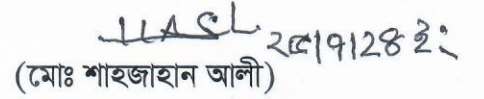 ২৫/৭/২৪ ইং
(মোঃ শাহজাহান আলী)